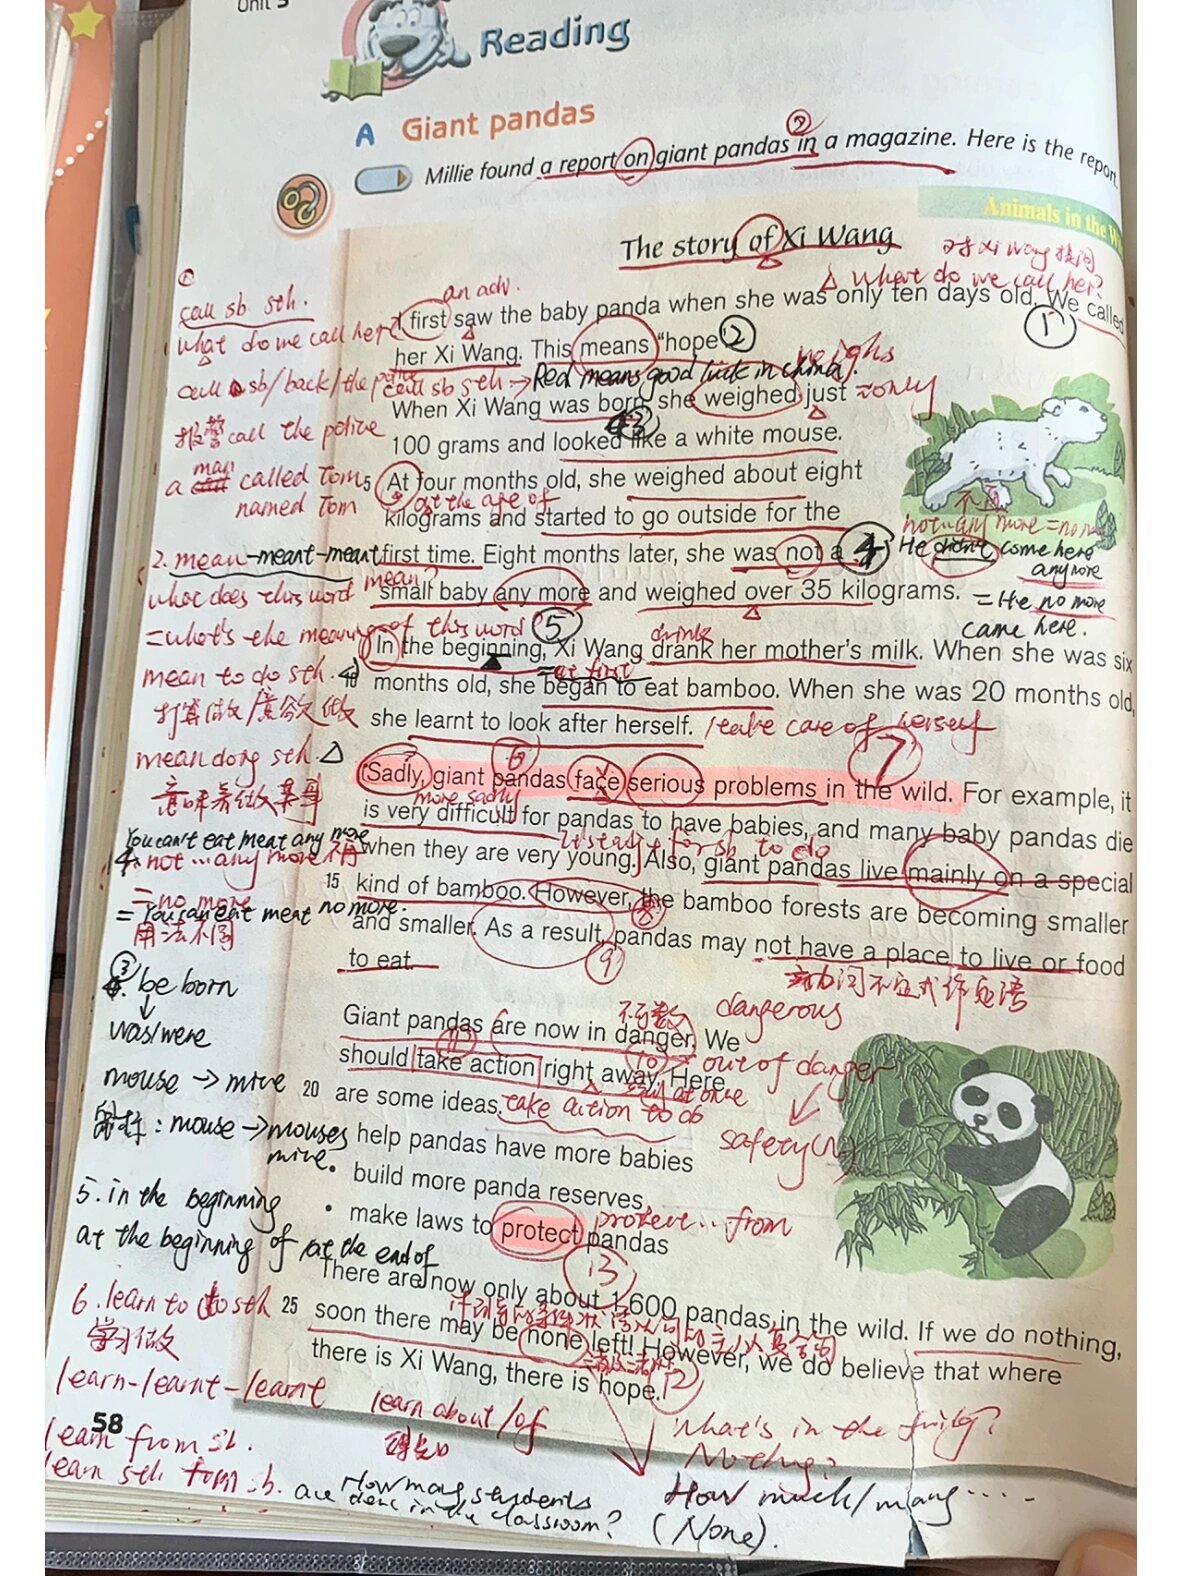 Unit 5
Reading
A Giant pandas
②
Millie found a report on giant pandas in a magazine. Here is the report.
Animals in the
The story of Xi Wang
对 Xi Wang 提问
What do we call her?
①
call sb sth.
an adv.
I first saw the baby panda when she was only ten days old. We called
①
what do we call her?
her Xi Wang. This means "hope
②
call sb/back/the police
call sb sth → Red means good luck in China.
weighs
When Xi Wang was born, she weighed just = only
报警 call the police
③
100 grams and looked like a white mouse.
man
a called Tom
named Tom
5 At four months old, she weighed about eight
at the age of
kilograms and started to go outside for the
not any more = no more
2. mean-meant-meant
first time. Eight months later, she was not a
④
He didn't come here
any more
what does this word mean?
small baby any more and weighed over 35 kilograms.
= He no more
came here.
= what's the meaning of this word?
⑤
drink
In the beginning, Xi Wang drank her mother's milk. When she was six
= at first
mean to do sth.
months old, she began to eat bamboo. When she was 20 months old,
打算做/意欲做
she learnt to look after herself. / take care of herself
mean doing sth. △
意味着做某事
6
7
Sadly, giant pandas face serious problems in the wild. For example, it
more sadly
is very difficult for pandas to have babies, and many baby pandas die
You can't eat meat any more
It's adj for sb to do
4. not ... any more 不再
when they are very young. Also, giant pandas live mainly on a special
= no more
15 kind of bamboo. However, the bamboo forests are becoming smaller
⑧
= You can eat meat no more.
用法不同
and smaller. As a result, pandas may not have a place to live or food
⑨
to eat.
动词不定式作定语
③ be born
↓
was/were
不可数
dangerous
Giant pandas are now in danger. We
⑪
⑩ → out of danger
should take action right away. Here
at once
safety(n)
mouse → mice
20 are some ideas.
take action to do
mouse → mouses
mice
• help pandas have more babies
• build more panda reserves
• make laws to protect pandas
protect... from
5. in the beginning
at the beginning of / at the end of
13
There are now only about 1,600 pandas in the wild. If we do nothing,
6. learn to do sth
学习做
25 soon there may be none left! However, we do believe that where
there is Xi Wang, there is hope.
12
learn-learnt-learnt
learn about/of
得知
58
learn from sb.
learn sth from sb.
What's in the fridge?
Nothing.
How many students
are there in the classroom?
How much/many ......
(None).